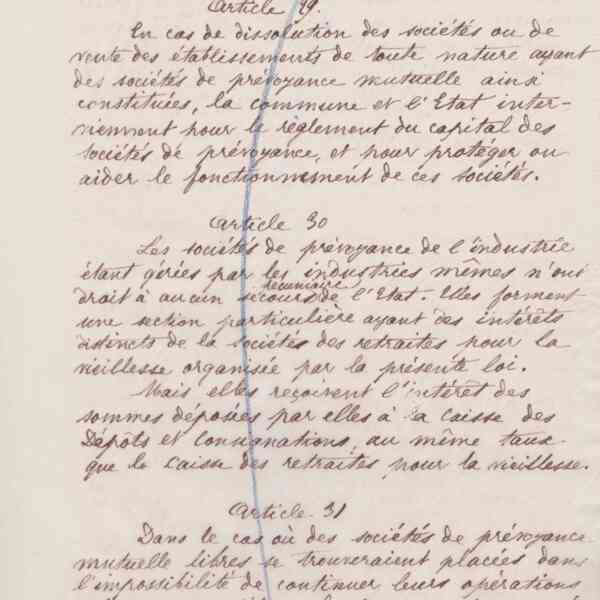 Article 29.
En cas de dissolution des sociétés ou de
vente des établissements de toute nature ayant
des sociétés de prévoyance mutuelle ainsi
constituées, la commune et l'Etat inter-
viennent pour le règlement du capital des
sociétés de prévoyance, et pour protéger ou
aider le fonctionnement de ces sociétés.
Article 30
Les sociétés de prévoyance de l'industrie
étant gérées par les industries mêmes n'ont
pécuniaire
droit à aucun secours de l'Etat. Elles forment
une section particulière ayant des intérêts
distincts de la sociétés des retraites pour la
vieillesse organisée par la présente loi.
Mais elles reçoivent l'intérêt des
sommes déposées par elles à la caisse des
Dépôts et Consignations, au même taux
que la Caisse des retraites pour la vieillesse.
Article 31
Dans le cas où des sociétés de prévoyance
mutuelle libres se trouveraient placées dans
l'impossibilité de continuer leurs opérations